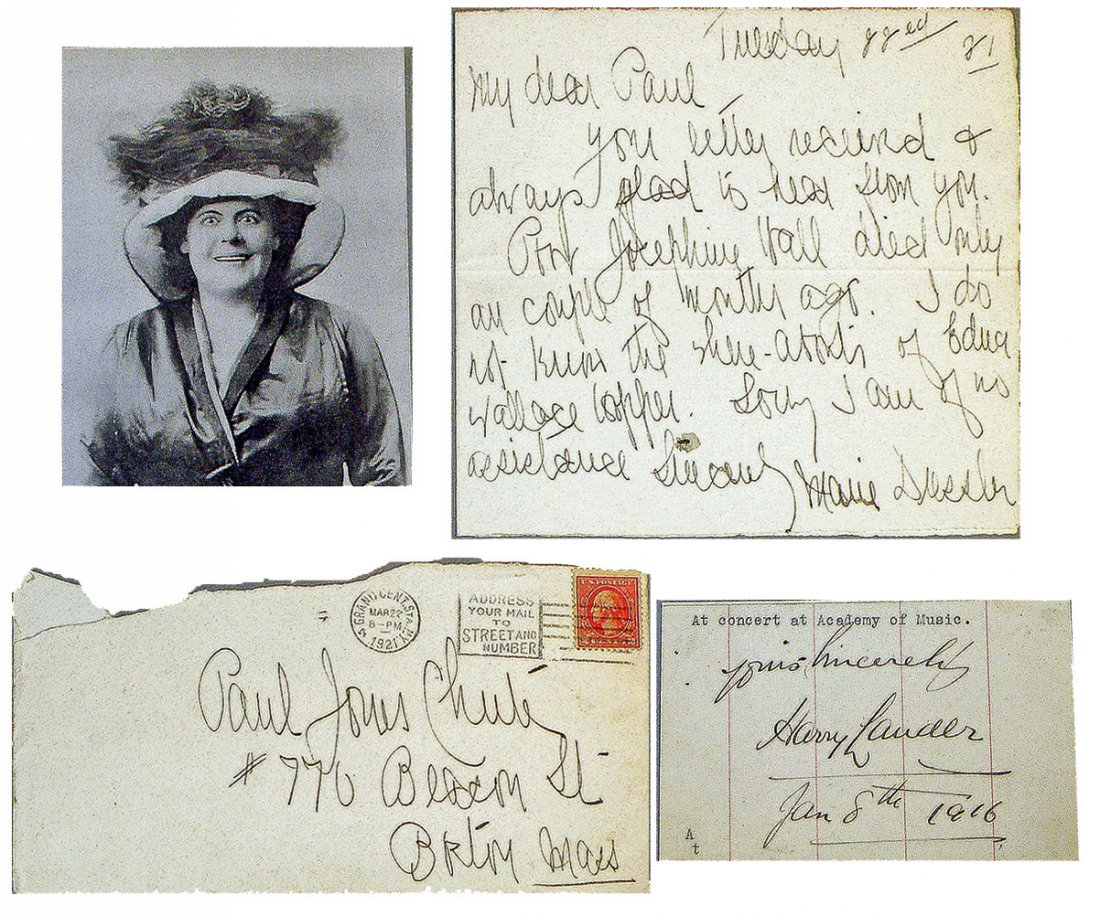 Tuesday 22ed
21
My dear Paul
you letter received &
always glad to hear from you.
Poor Josephine Hall died only
au couple of months ago. I do
not know the where-abouts of Edna
Wallace Hopper. Sorry I am of no
assistance Sincerely
Marie Dressler
GRAND CENT. STA. N.Y.
MAR 22
8-PM
1921
ADDRESS
YOUR MAIL
TO
STREET AND
NUMBER
U.S. POSTAGE
Paul Jones Chute
# 776 Beacon St
Boston Mass
At concert at Academy of Music.
yours Sincerely
Harry Lauder
Jan 8th 1916
A
t